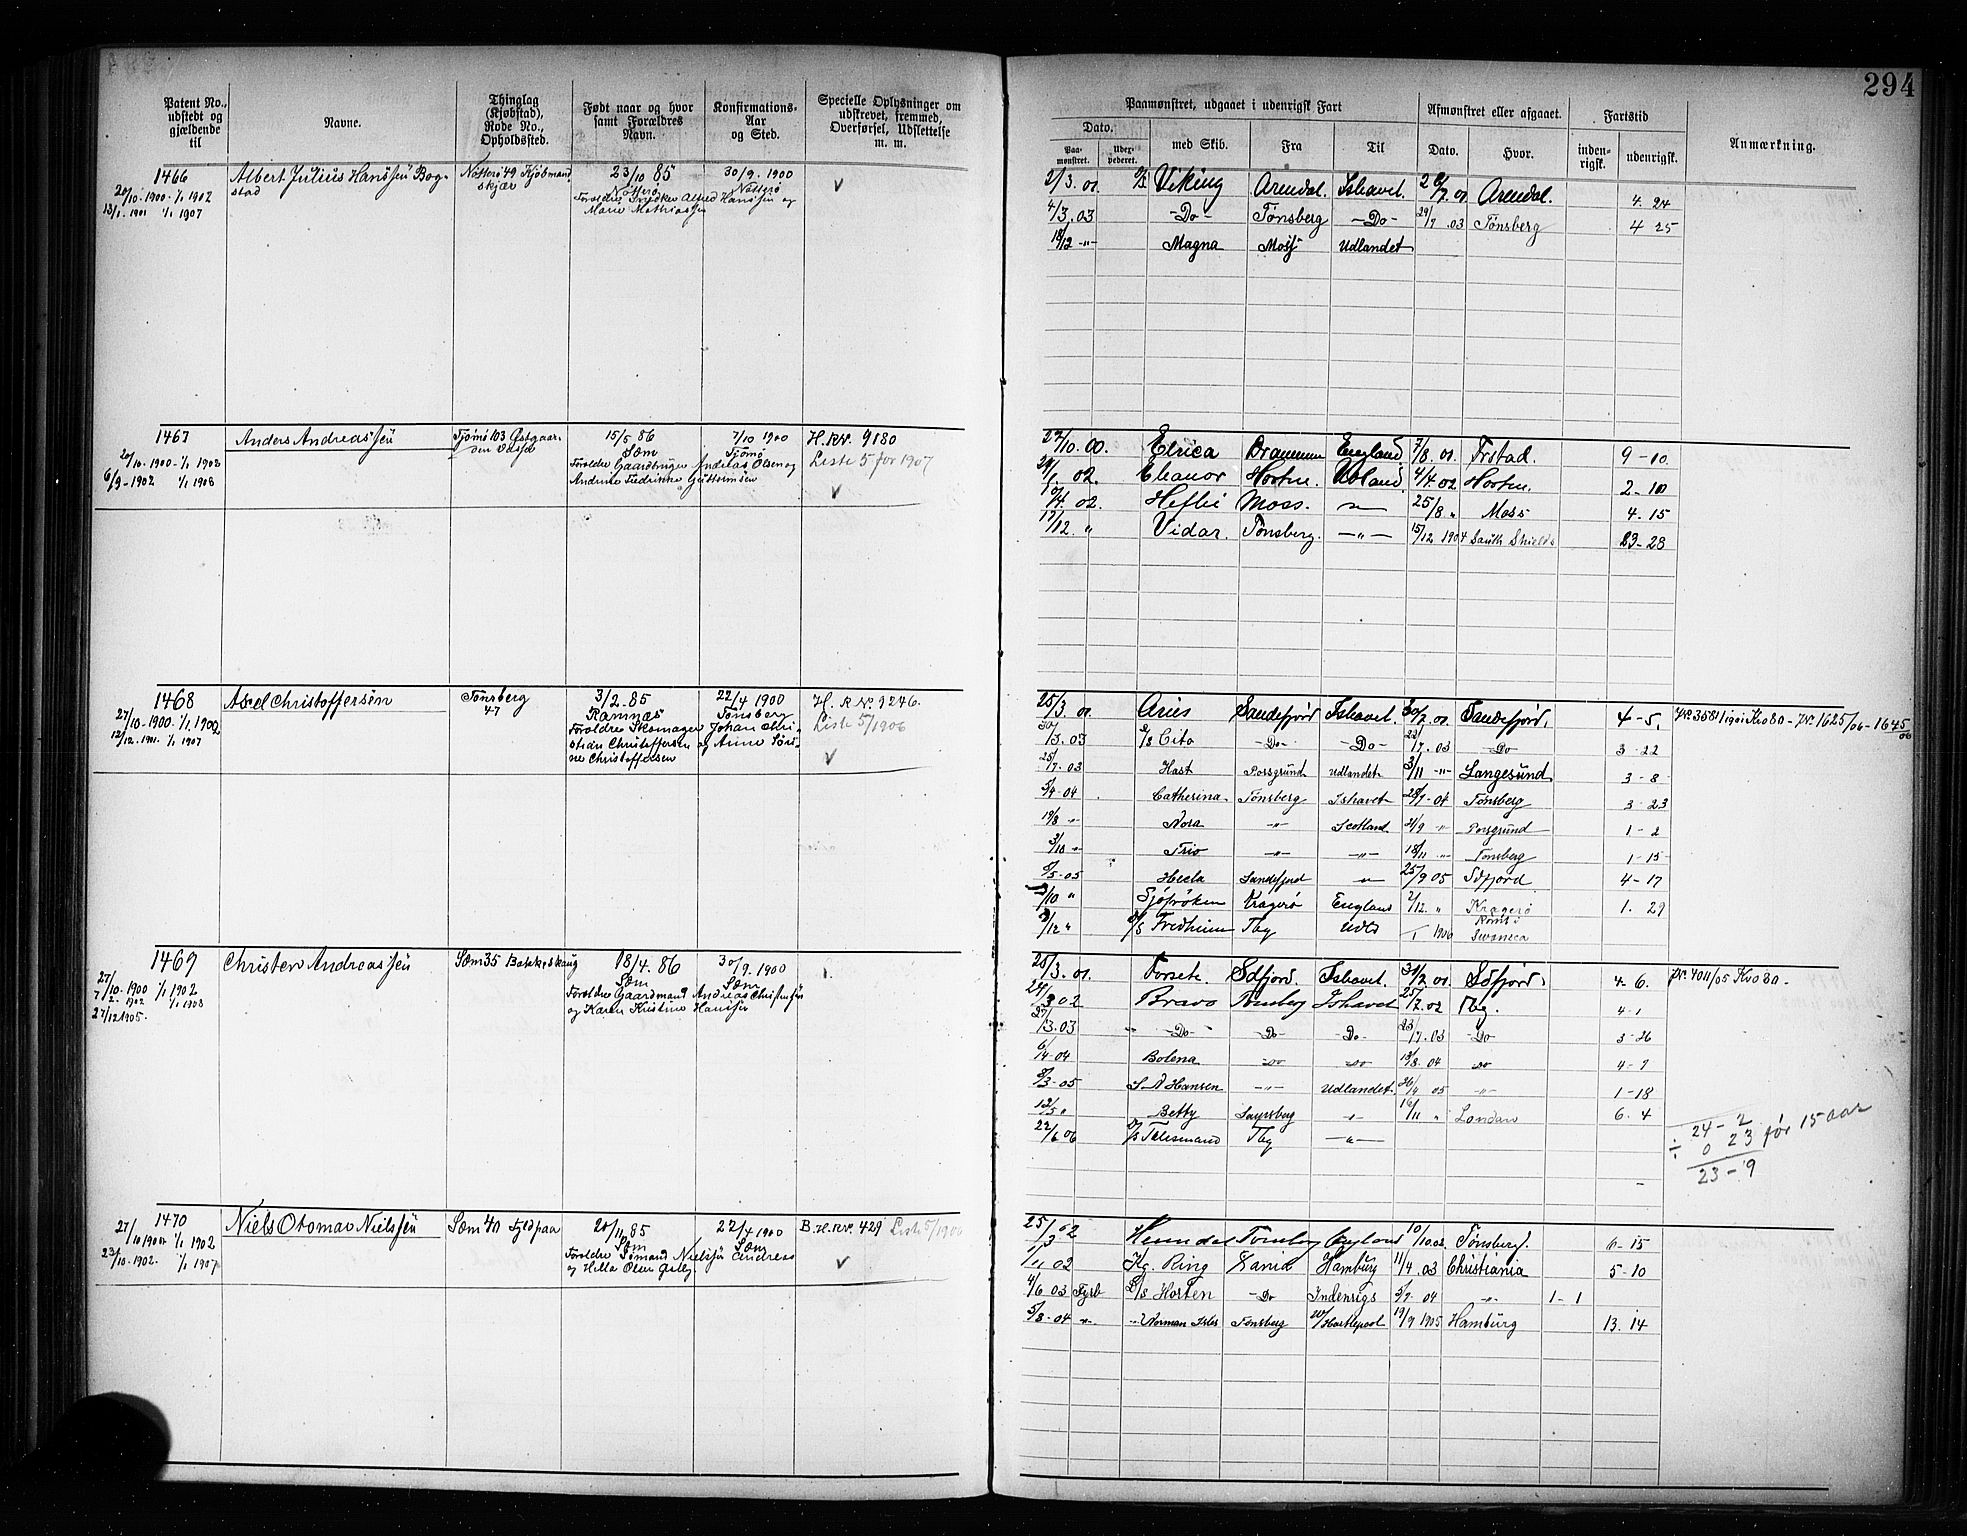 294
Patent No., udstedt og gjældende til
Navne.
Thinglag (Kjøbstad), Rode No., Opholdssted.
Født naar og hvor samt Forældres Navn.
Konfirmations-Aar og Sted.
Specielle Oplysninger om udskrevet, fremmed, Overførsel, Udslettelse m. m.
Paamønstret, udgaaet i udenrigsk Fart
Afmønstret eller afgaaet.
Fartstid
Anmærkning.
Dato.
Paa-mønstret.
med Skib.
Fra
Til
Dato.
Hvor.
inden-rigsk.
udenrigsk.
1466
20/10-1900-1/1 1902
13/1 1901 1/1 1907
Albert Julius Hanssen Bog-
stad
Nøtterø 49 Kjøbmand
skjær
23/10 85
Nøtterø
30/9. 1900
Nøtterø
Marie Mathiassen
21/3. 01. Viking Arendal. Ishavet. Arendal. 4. 24
4/3. 03 -Do- Tønsberg -Do- 29/7 .03 Tønsberg 4 25
18/12 -"- Magna Moss Udlandet
1467
20/10-1900-1/1 1903
6/9-1902 1/1 1908
Anders Andreassen
Tjømø 103
15/5 86
Sæm
7/10 1900
Tjømø
Forældre Gaardbruger Andreas Olsen og
H. R№. 9180
Liste 5 for 1907
27/10. 00. Elrica Drammen England 7/8. 01. Frstad. 9-10.
29/1. 02. Eleanor Horten. Udland. 4/4. 02 Horten. 2-10
10/4. 02. Moss. 25/8. " Moss 4. 15
17/12. " Vidar. Tønsberg. -"- 15/12 1904 South Shields 23-28
1468
27/10-1900-1/1 1902
12/12.-1901. 1/1 1907
Axel Christoffersen
Tønsberg
47
3/2-85
Ramnæs
22/4 1900
Tønsberg
Forældre Skomager Johan Chri-
stian Christoffersen og Anne Søri-
ne Christoffersen
H. R №. 9246.
Liste 5/1906
25/3. 01. Aries Sandefjord Ishavet. 30/7. 01. Sandefjord. 4-5. J№ 3581/1901 Kr080-J№. 1625/06-1645/06
30/3. 03 S/S Cito -Do- -Do- 22/7. 03 -Do 3-22
25/7. 03 Hast Porsgrund Udlandet 3/11 -"- Langesund 3-8
5/4-04 Catherina Tønsberg Ishavet 28/7-04 Tønsberg 3-23
19/8 " Nora -"- Scotland. 21/9 -"- Porsgrund 1-2
3/10 " Trio -"- -"- 18/11 -"- Tønsberg 1-15
8/5-05 Hecla Sandefjord -"- 25/9 05 Sdfjord. 4-17
3/10 " Sjøfrøken Kragerø England 2/12. " Kragerø 1. 29
3/12 " S/S Fredheim Tbg Udld 1906
1469
27/10-1900 1/1 1902
7/2-1902 1/1 1908
27/12 1905.
Christen Andreassen
Sæm 35 Bakkeskaug
18/4. 86
Sæm
30/9. 1900
Sæm
Forældre Gaardmand Andreas Christensen
og Karen Kristine Hanssen
25/3. 01. Forsete. Sdfjord. Ishavet. 31/7. 01. Sdfjord. 4-6. J№. 4011/05 Kr080-
24/3 02 Bravo Tønsberg Ishavet 25/7. 02 Tbg. 4-1
27/3. 03 " -Do- -Do- Do- 23/7. 03 -Do 3-26
6/4-04 Bolena -Do -Do 13/8. 04 Do 4-7
8/3-05 S. A Hansen -"- Udlandet. 26/4 05 -"- 1-18
12/5 " Betty Sarpsborg -"- 16/11 " London 6. 4
22/6 06 S/S Talismand Tbg -"-
24-2
÷ 0 23 før 15 aar
23-9
1470
27/10 1900 1/1 1902
23/10-1902. 1/1 1907
Niels Otomar Nielssen
Sæm 40 Fyldpaa
20/11 85
Sæm
22/4 1900
Sæm
Forældre Sømand Nielssen Andreas
B. H. R№. 429 Liste 5/1906
25/3 02 Hemdal Tønsberg England 10/10. 02. Tønsberg. 6-15
1/11 02 Kg. Ring Xania Hamburg 11/4. 03 Christiania 5-10
4/6 03 Fyrb S/S Horten -Do Indenrigs 5/7. 04 -"- 1-1
5/8-04 -"- Norman Isles Tønsberg Hartlepool 19/9 1905 Hamburg 13. 14